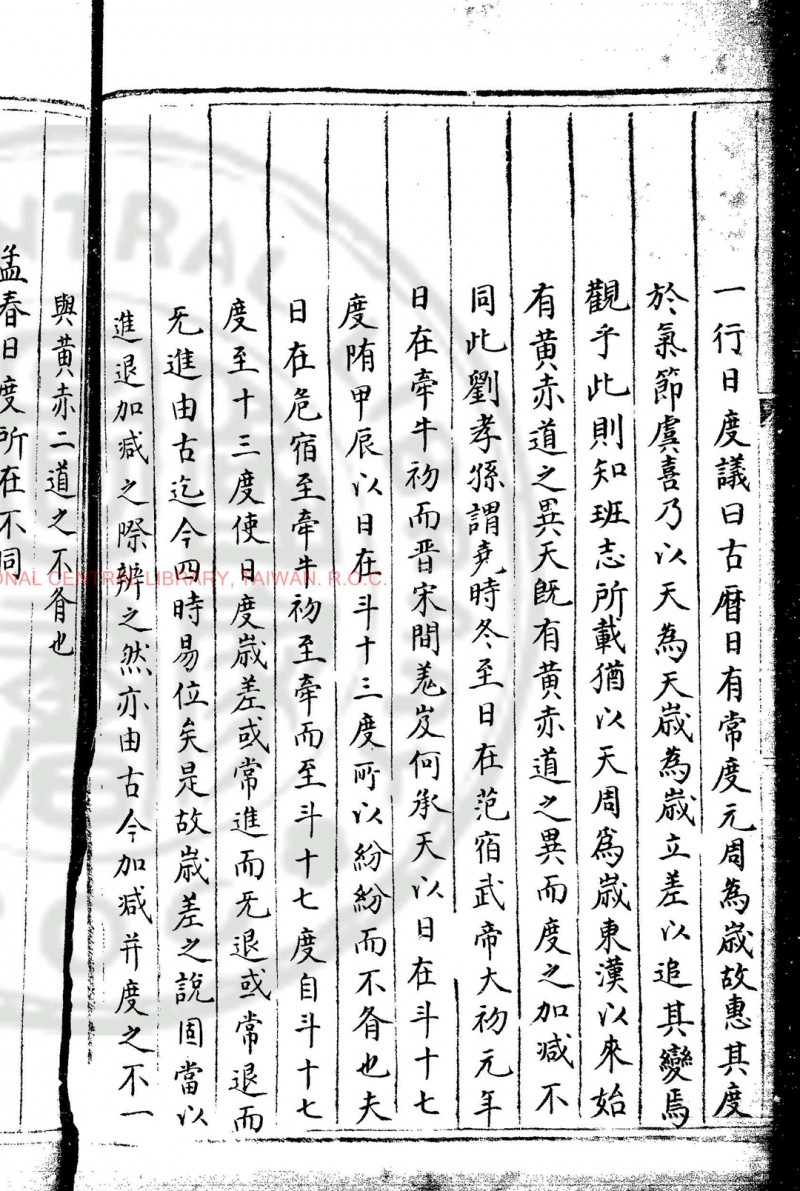 一行日度議曰古曆日有常度元周為歲故惠其度
於氣節虞喜乃以天為天歲為歲立差以追其變焉
觀乎此則知班志所載猶以天周為歲東漢以來始
有黃赤道之異天既有黃赤道之異而度之加減不
同此劉孝孫謂堯時冬至日在范宿武帝大初元年
日在牽牛初而晋宋間羗岌何承天以日在斗十七
度隋甲辰以日在斗十三度所以紛紛而不肻也夫
日在危宿至牽牛初至牽而至斗十七度自斗十七
度至十三度使日度歲差或常進而旡退或常退而
旡進由古迄今四時易位矣是故歲差之說固當以
進退加减之際辨之然亦由古今加减并度之不一
與黃赤二道之不肻也
孟春日度所在不同
NATIONAL CENTRAL LIBRARY, TAIWAN. R.O.C.